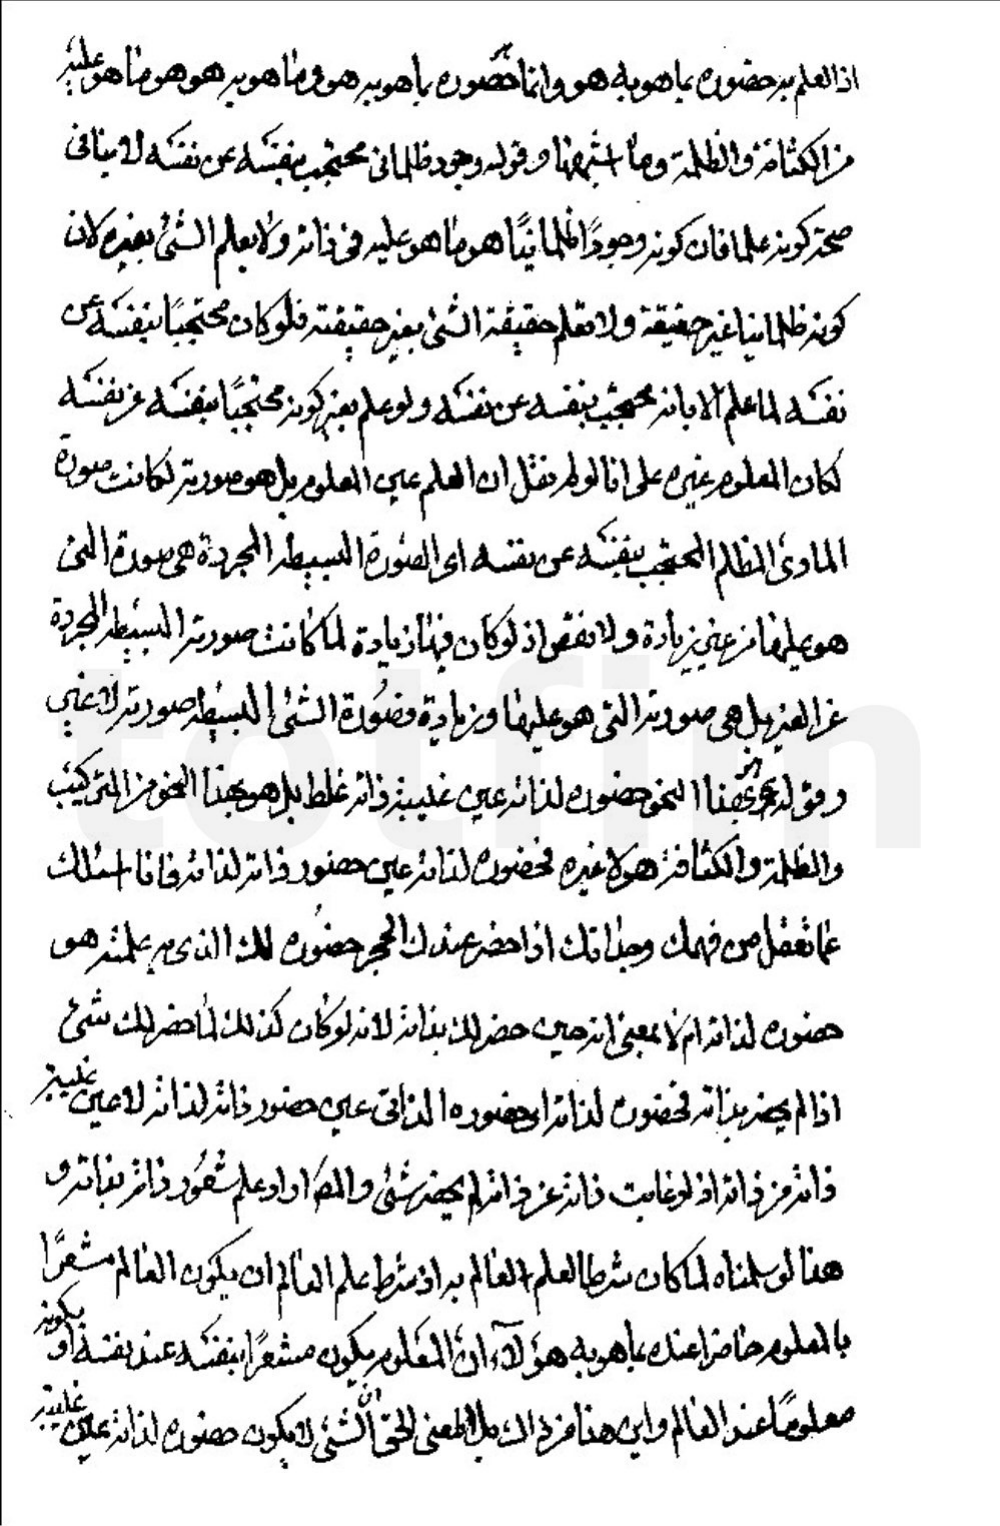 اذ العلم به حضوره بما هو به هو وانما حضوره بما هو به هو وما هو به هو هو ما هو عليه
من الكثافة والظلمة وما اشبههما وقوله وجود ظلمانى محتجب بنفسه عن نفسه لا ينافى
صحة كونه علما فان كونه وجودًا ظلمانيًا هو ما هو عليه فى ذاته ولا يعلم الشئ بغيره لان
كونه ظلمانيا غير حقيقة ولا تعلم حقيقة الشئ بغير حقيقته فلو كان محتجبًا بنفسه عن
نفسه لما علم الا بانه محتجب بنفسه عن نفسه ولو علم بغير كونه محتجبًا بنفسه عن نفسه
لكان المعلوم غيره على انا لو لم نقل ان العلم عين المعلوم بل هو صورته لكانت صورة
المادى المظلم المحتجب بنفسه عن نفسه اى الصورة البسيطة المجردة هى صورة التى
هو عليها من غير زيادة ولا نقص اذ لو كان فيها زيادة لما كانت صورته البسيطة المجردة
عن الغير بل هى صورته التى هو عليها وزيادة وصورة الشئ البسيطة صورته لا غير
وقوله هو بهذا النحو حضوره لذاته عين غيبة ذاته غلط بل هو بهذا النحو من التركيب
والظلمة والكثافة هو لا غيره فحضوره لذاته عين حضور ذاته لذاته فانا اسئلك
عما تعقل من فهمك وجدانك اذا حضر عندك الحجر حضوره لك الذى به علمته هو
حضوره لذاته ام لا بمعنى انه حين حضر لك بذاته لانه لو كان كذلك لما حضر لك شئ
اذا لم يحضر بذاته فحضوره لذاته اى حضوره الذاتى عين حضور ذاته لذاته لا عين غيبة
ذاته من ذاته اذ لو غابت ذاته عن ذاته لم يحضر شئ والمص اراد علم شعور ذاته بذاته و
هذا لو سلمناه لما كان شرطا لعلم العالم به اذ شرط علم العالم ان يكون العالم مشعرًا
بالمعلوم حاضرا عنده بما هو به هو لا ان المعلوم يكون مشعرًا بنفسه عند نفسه او يكونه
معلومًا عند العالم واين هذا من ذاك بل المعنى الحق ان الشئ لا يكون حضوره لذاته عين غيبة